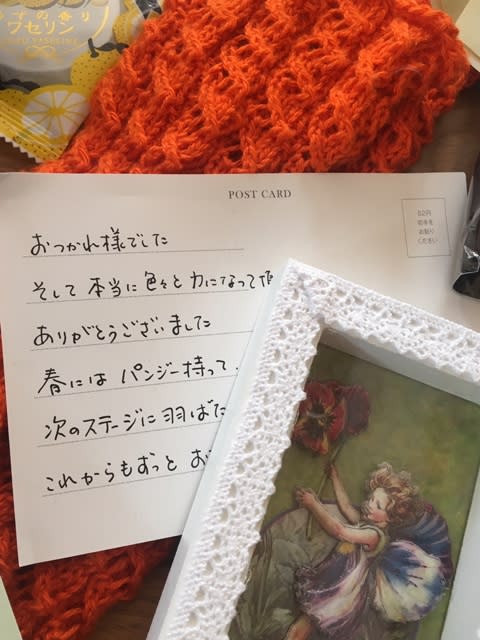 ずの香り
ワセリン
POST CARD
52円
切手を
お貼り
ください
おつかれ様でした
そして 本当に 色々と 力になって
ありがとうございました
春には パンジー持って
次のステージに 羽ばた
これからもずっと